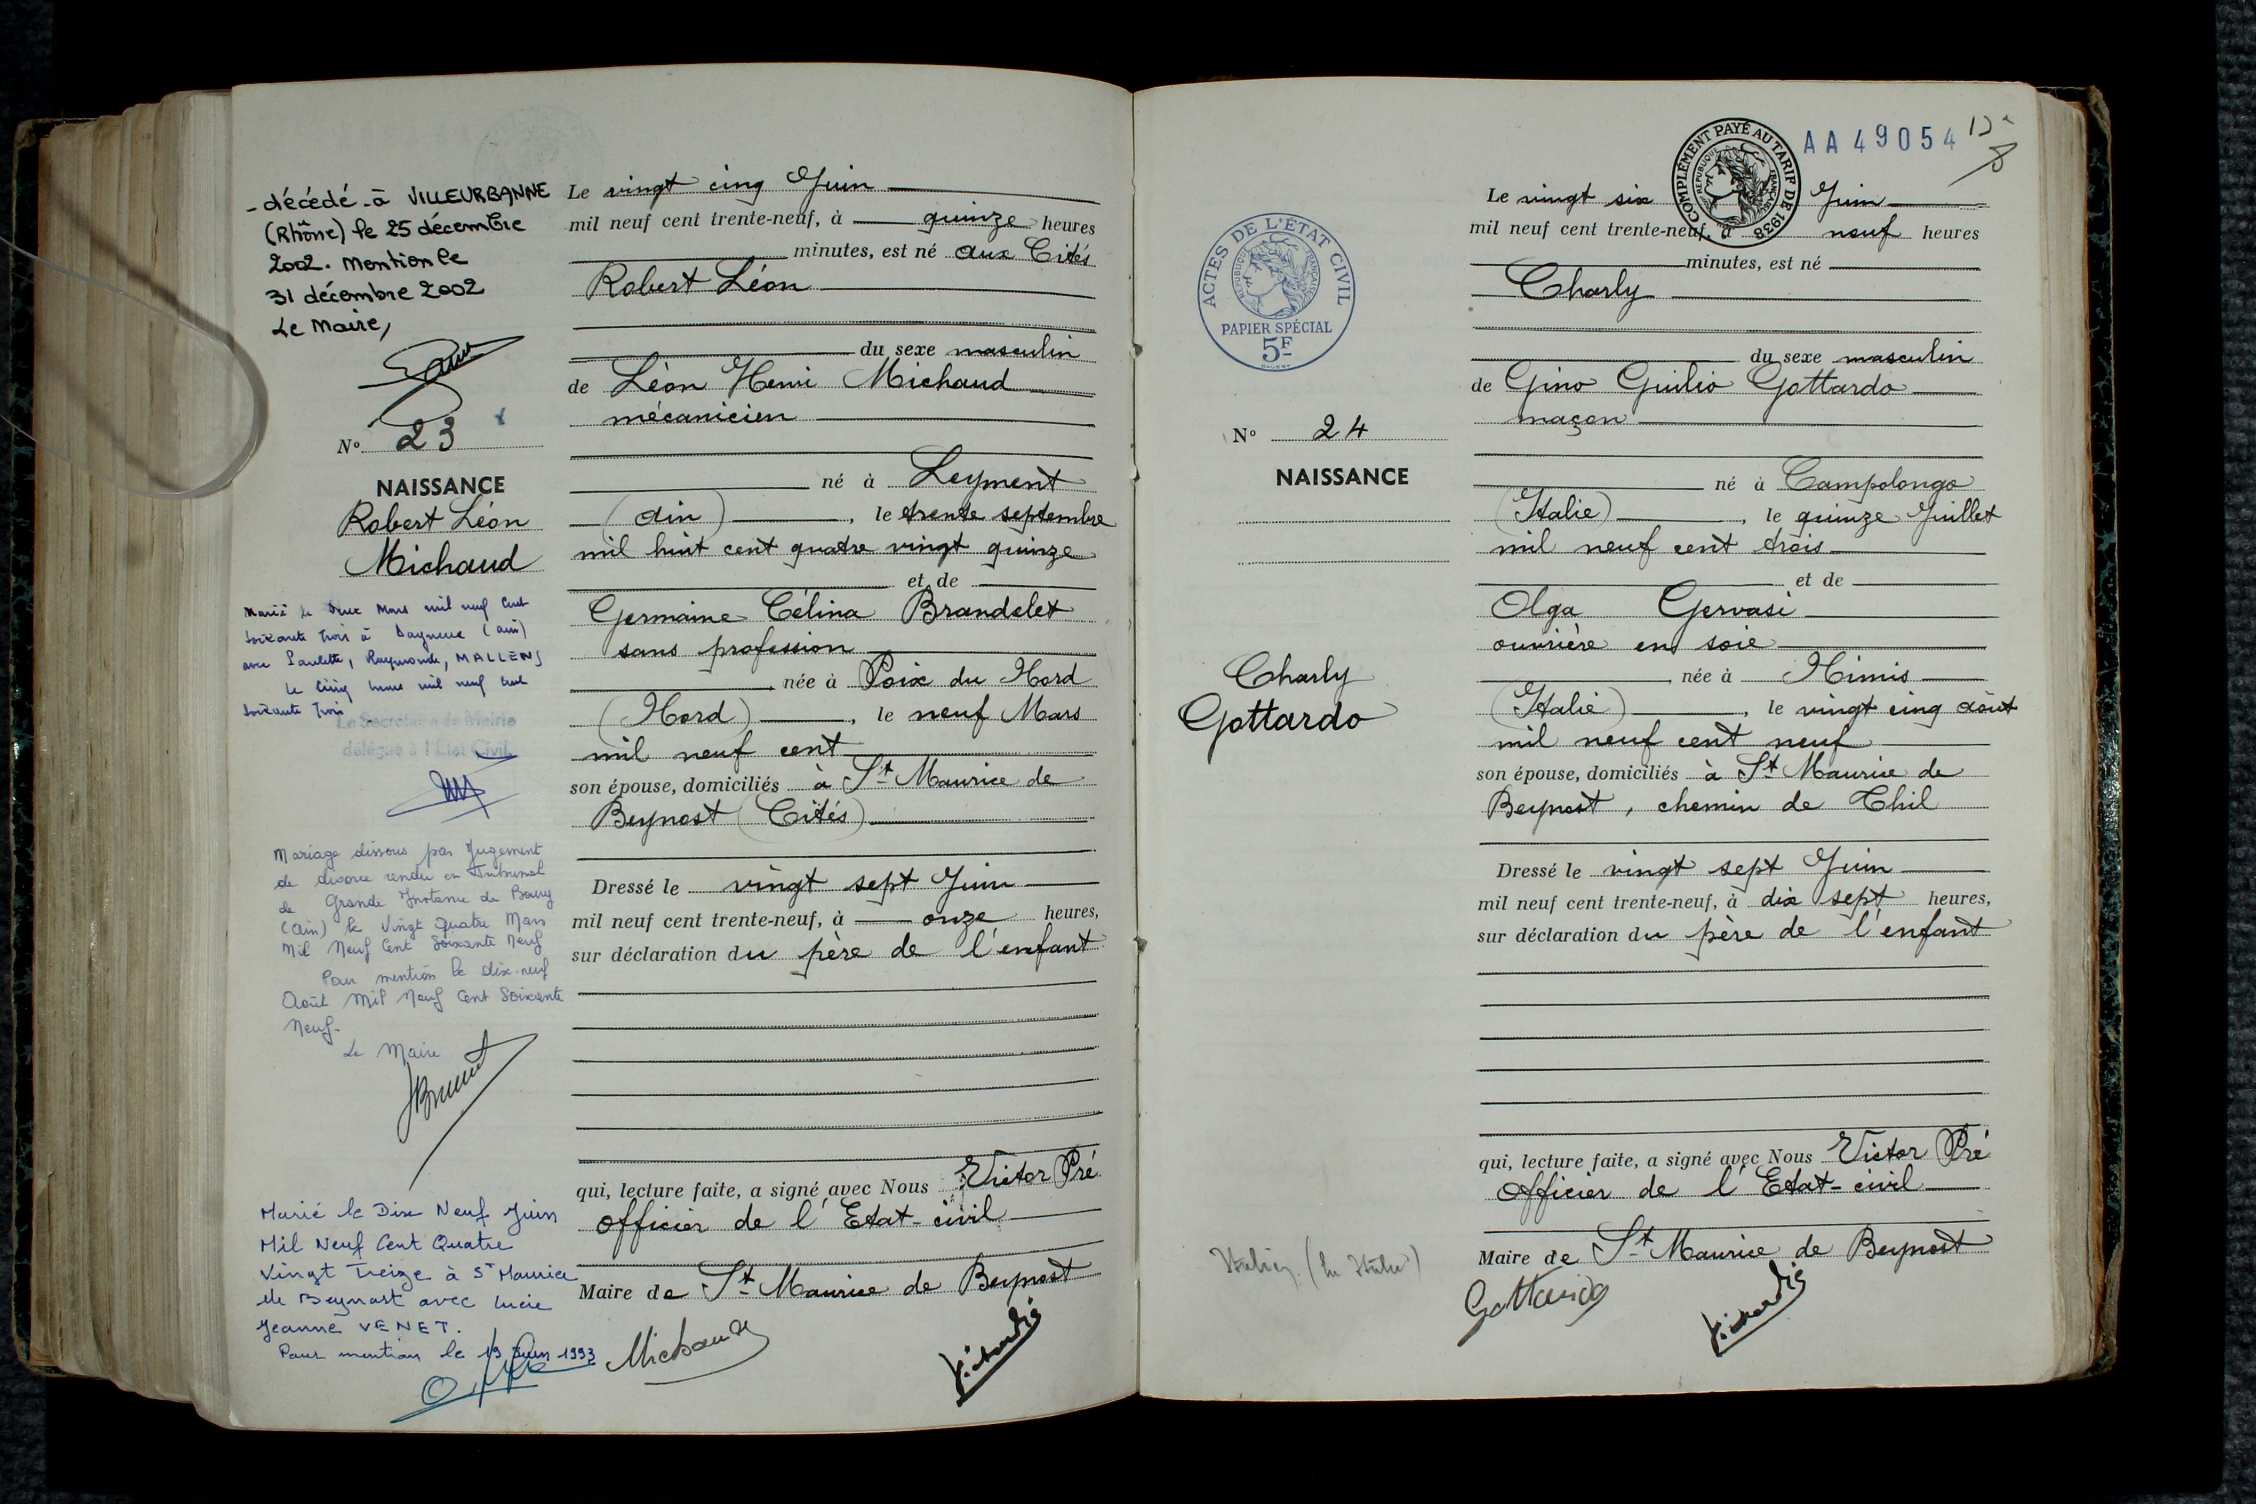 - décédé - à VILLEURBANNE
(Rhône) le 25 décembre
2002. Mention le
31 décembre 2002
Le Maire,
N° 23
NAISSANCE
Robert Léon
Michaud
Marié le deux Mars mil neuf cent
soixante trois à Dagneux (ain)
avec Paulette, Raymonde, MALLENS
le cinq mars mil neuf cent
soixante trois
Le Secrétaire de Mairie
délégué à l'Etat Civil
Mariage dissous par Jugement
de divorce rendu en Tribunal
de Grande Instance de Bourg
(ain) le Vingt Quatre Mars
Mil Neuf Cent Soixante Neuf
Pour mention le dix-neuf
Août Mil Neuf Cent Soixante
Neuf.
Le Maire
Marié le Dix Neuf Juin
Mil Neuf Cent Quatre
Vingt Treize à St Maurice
de Beynost avec Lucie
Jeanne VENET.
Pour mention le 19 Juin 1993
Le vingt cinq Juin
mil neuf cent trente-neuf, à quinze heures
minutes, est né aux Cités
Robert Léon
du sexe masculin
de Léon Henri Michaud
mécanicien
né à Leyment
(Ain), le trente septembre
mil huit cent quatre vingt quinze
et de
Germaine Célina Brandelet
sans profession
née à Poix du Nord
(Nord), le neuf Mars
mil neuf cent
son épouse, domiciliés à St Maurice de
Beynost (Cités)
Dressé le vingt sept Juin
mil neuf cent trente-neuf, à onze heures,
sur déclaration du père de l'enfant
qui, lecture faite, a signé avec Nous Victor Pré
Officier de l'Etat-civil
Maire de St Maurice de Beynost
Michaud
AA 49054
COMPLÉMENT PAYÉ AU TARIF DE 1938
RÉPUBLIQUE FRANÇAISE
ACTES DE L'ÉTAT CIVIL
RÉPUBLIQUE FRANÇAISE
PAPIER SPÉCIAL
5F
N° 24
NAISSANCE
Charly
Gottardo
Le vingt six Juin
mil neuf cent trente-neuf, à neuf heures
minutes, est né
Charly
du sexe masculin
de Gino Guilio Gottardo
maçon
né à Campolongo
(Italie), le quinze Juillet
mil neuf cent trois
et de
Olga Gervasi
ouvrière en soie
née à Nimis
(Italie), le vingt cinq août
mil neuf cent neuf
son épouse, domiciliés à St Maurice de
Beynost, chemin de Thil
Dressé le vingt sept Juin
mil neuf cent trente-neuf, à dix sept heures,
sur déclaration du père de l'enfant
qui, lecture faite, a signé avec Nous Victor Pré
Officier de l'Etat-civil
Maire de St Maurice de Beynost
Gottardo